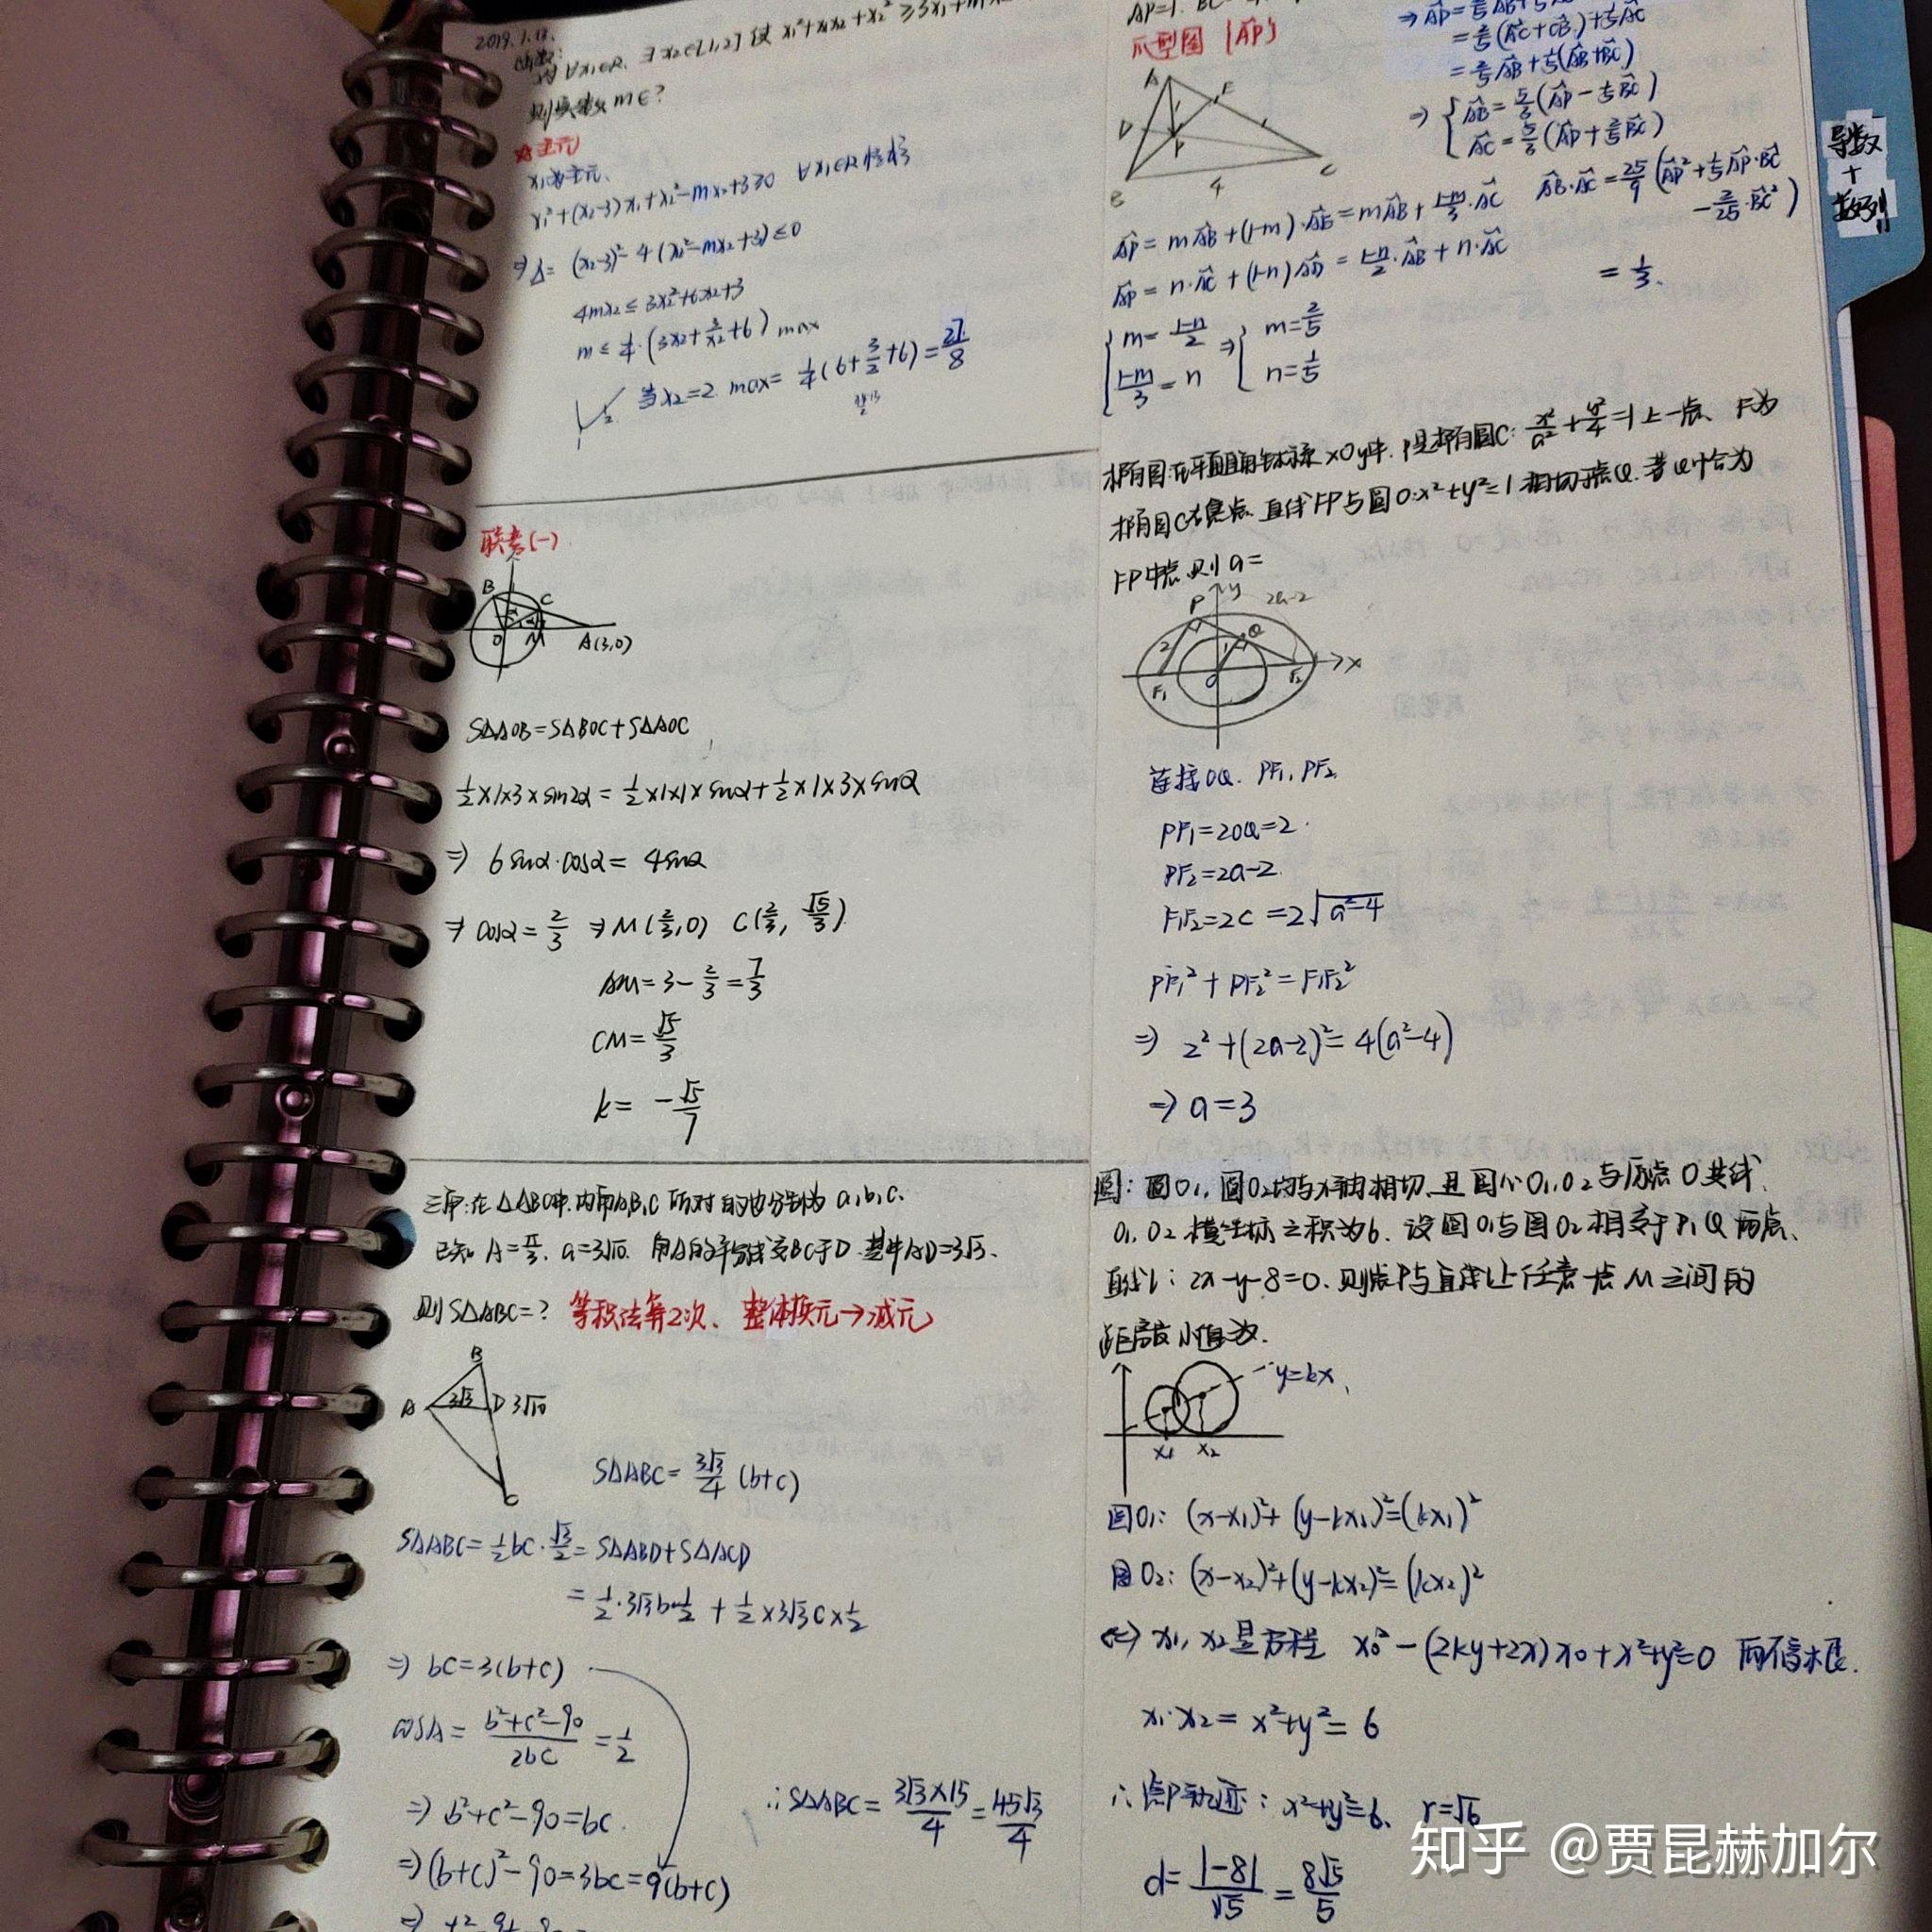 2019.1.13.
对∀x₁∈R, ∃x₂∈[1,2] 使 x₁²+x₁x₂+x₂² ≥3x₁+mx₂
则实数 m∈?
主元
x₁为主元、
x₁²+(x₂-3)x₁+x₂²-mx₂+3≥0 ∀x₁∈R恒成
⇒Δ= (x₂-3)²-4(x₂²-mx₂+3)≤0
4mx₂≤3x₂²+6x₂+3
m≤¼·(3x₂+3/x₂+6) max
当x₂=2. max= ¼(6+3/2+6)=27/8
联考(一)
B C
O M A(3,0)
S△AOB=S△BOC+S△AOC
½×1×3×sin2α=½×1×1×sinα+½×1×3×sinα
⇒ 6sinα·cosα= 4sinα
⇒ cosα=2/3 ⇒M(2/3,0) C(2/3, √5/3)
AM=3-2/3=7/3
CM=√5/3
k= -√5/7
三角:在△ABC中.内角A,B,C 所对的边分别为 a,b,c.
已知 A=π/3. a=3√10. 角A的平分线交BC于D.其中AD=3√3.
则S△ABC=? 等积法算2次、整体换元→减元
B
A 3√3 D 3√10
C
S△ABC=3√3/4 (b+c)
S△ABC=½bc·√3/2=S△ABD+S△ACD
=½·3√3b·½+½×3√3c×½
⇒ bc=3(b+c)
cosA= (b²+c²-90)/2bc =½
⇒ b²+c²-90=bc.
∴S△ABC= 3√3×15/4=45√3/4
⇒(b+c)²-90=3bc=9(b+c)
AP=1. BC=4
爪型图 {AP}
A
D F
P
B 4 C
=⅗(AC+CB)+⅕AC
=⅖AB+⅕(AB+BC)
⇒ { AB=5/3(AP-⅕BC)
AC=5/3(AP+⅖BC)
AP= mAB+(1-m)·AE=mAB+(1-m)/3·AC
AB·AC=25/9(AP²+⅕AP·BC
-2/25·BC²)
AP=n·AC+(1-n)AD=(1-n)/2·AB+n·AC
=⅓.
{ m=(1-n)/2 ⇒ { m=⅖
(1-m)/3=n n=⅕
椭圆:在平面直角坐标系xOy中. P是椭圆C: x²/a²+y²/4=1上一点、F为
椭圆C右焦点.直线FP与圆O:x²+y²=1相切于点Q.若Q恰为
FP中点.则a=
P y 2a-2
2 1 Q
F₁ O F₂ x
连接OQ. PF₁, PF₂
PF₁=2OQ=2.
PF₂=2a-2.
F₁F₂=2c=2√(a²-4)
PF₁²+PF₂²=F₁F₂²
⇒ 2²+(2a-2)²=4(a²-4)
⇒ a=3
圆:圆O₁,圆O₂均与x轴相切.且圆心O₁,O₂与原点O共线、
O₁,O₂横坐标之积为6. 设圆O₁与圆O₂相交于P,Q两点、
直线l: 2x-y-8=0.则点P与直线l上任意一点M之间的
距离最小值为.
y=kx
x₁ x₂
圆O₁: (x-x₁)²+(y-kx₁)²=(kx₁)²
圆O₂: (x-x₂)²+(y-kx₂)²=(kx₂)²
⇔ x₁, x₂是方程 x₀²-(2ky+2x)x₀+x²+y²=0 两个根.
x₁·x₂=x²+y²=6
∴点P轨迹: x²+y²=6. r=√6
d=|-8|/√5=8√5/5
导数
+
数列
知乎 @贾昆赫加尔